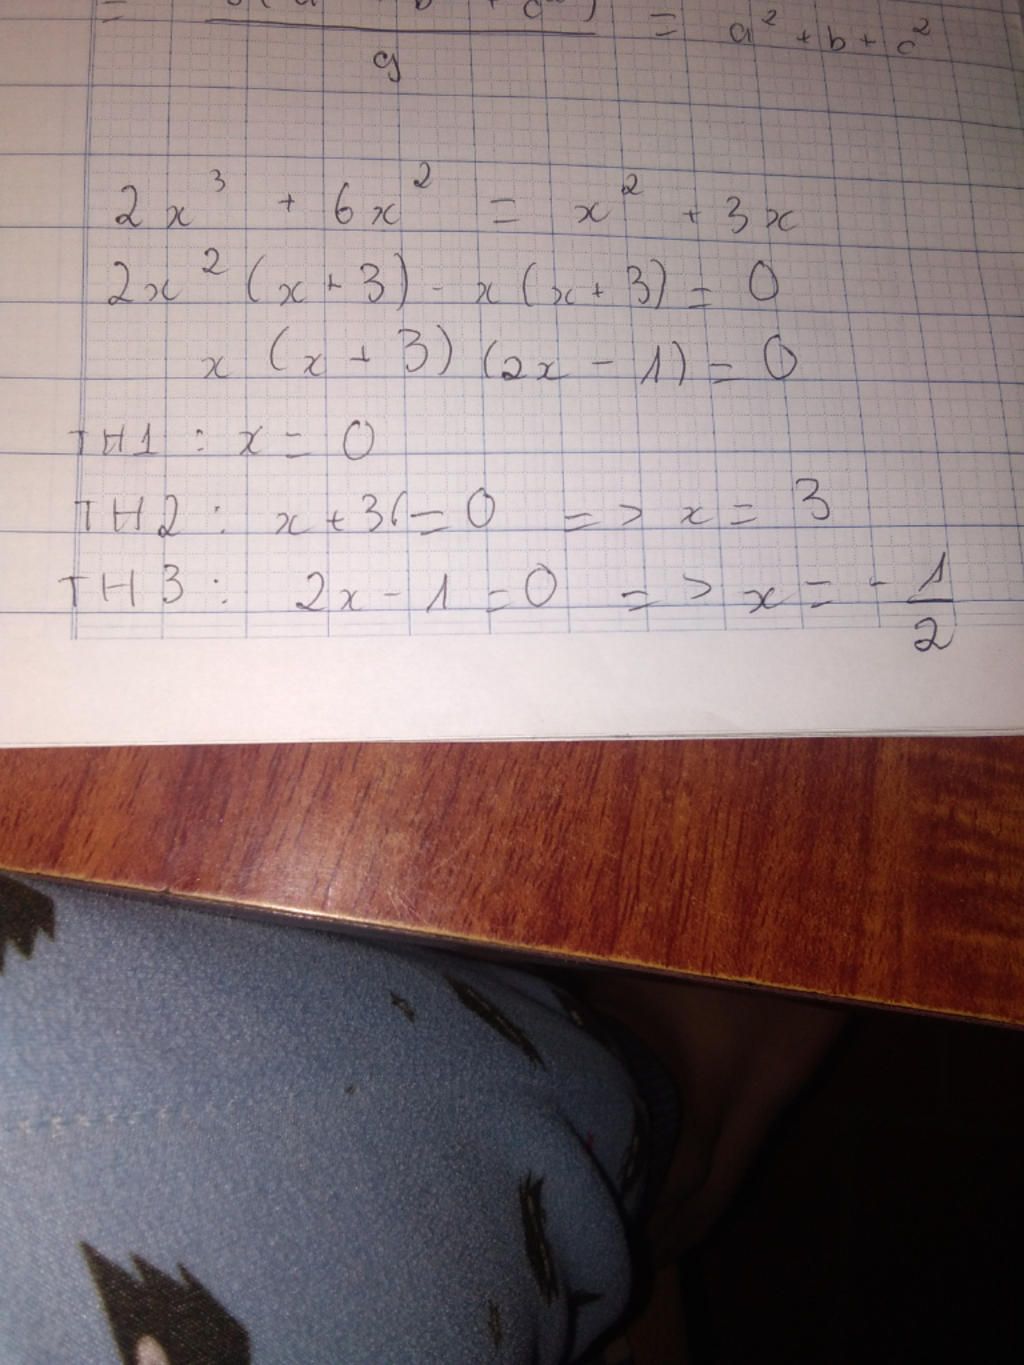 = a² + b + c²
9
2x³ + 6x² = x² + 3x
2x² (x + 3) - x (x + 3) = 0
x (x + 3) (2x - 1) = 0
TH1 : x = 0
TH2 : x + 3 = 0 => x = 3
TH3 : 2x - 1 = 0 => x = - 1/2